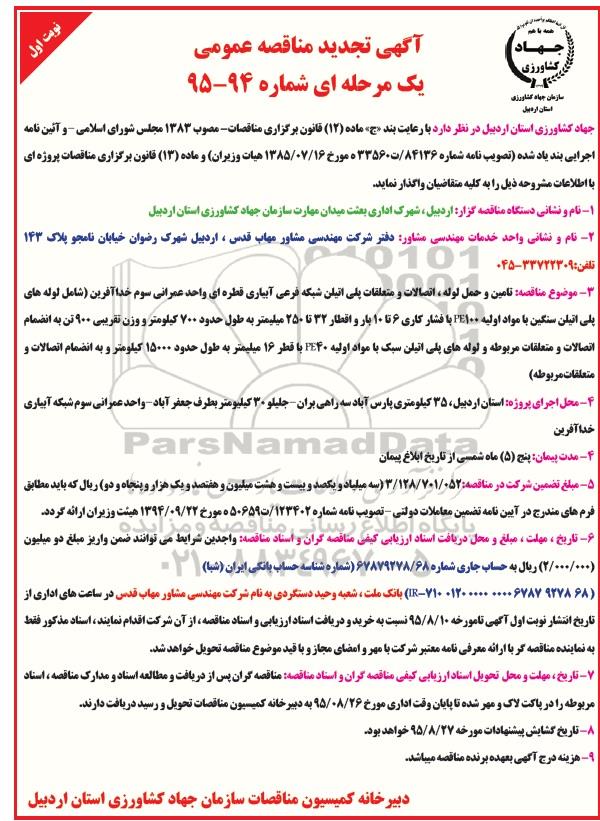 نوبت اول
همه با هم
جهاد
کشاورزی
سازمان جهاد کشاورزی
استان اردبیل
آگهی تجدید مناقصه عمومی
یک مرحله ای شماره ۹۴-۹۵
جهاد کشاورزی استان اردبیل در نظر دارد با رعایت بند «ج» ماده (۱۲) قانون برگزاری مناقصات- مصوب ۱۳۸۳ مجلس شورای اسلامی - و آئین نامه
اجرایی بند یاد شده (تصویب نامه شماره ۸۴۱۳۶/ت۳۳۵۶۰ ه مورخ ۱۳۸۵/۰۷/۱۶ هیات وزیران) و ماده (۱۳) قانون برگزاری مناقصات پروژه ای
با اطلاعات مشروحه ذیل را به کلیه متقاضیان واگذار نماید.
۱- نام و نشانی دستگاه مناقصه گزار: اردبیل ، شهرک اداری بعثت میدان مهارت سازمان جهاد کشاورزی استان اردبیل
۲- نام و نشانی واحد خدمات مهندسی مشاور: دفتر شرکت مهندسی مشاور مهاب قدس ، اردبیل شهرک رضوان خیابان نامجو پلاک ۱۴۳
تلفن:۳۳۷۲۲۳۰۹-۰۴۵
۳- موضوع مناقصه: تامین و حمل لوله ، اتصالات و متعلقات پلی اتیلن شبکه فرعی آبیاری قطره ای واحد عمرانی سوم خداآفرین (شامل لوله های
پلی اتیلن سنگین با مواد اولیه PE۱۰۰ با فشار کاری ۶ تا ۱۰ بار و اقطار ۳۲ تا ۲۵۰ میلیمتر به طول حدود ۷۰۰ کیلومتر و وزن تقریبی ۹۰۰ تن به انضمام
اتصالات و متعلقات مربوطه و لوله های پلی اتیلن سبک با مواد اولیه PE۴۰ با قطر ۱۶ میلیمتر به طول حدود ۱۵۰۰۰ کیلومتر و به انضمام اتصالات و
متعلقات مربوطه)
۴- محل اجرای پروژه: استان اردبیل، ۳۵ کیلومتری پارس آباد سه راهی بران - جلیلو ۳۰ کیلیومتر بطرف جعفر آباد - واحد عمرانی سوم شبکه آبیاری
خداآفرین
۴- مدت پیمان: پنج (۵) ماه شمسی از تاریخ ابلاغ پیمان
۵- مبلغ تضمین شرکت در مناقصه:۳/۱۲۸/۷۰۱/۰۵۲ (سه میلیاد و یکصد و بیست و هشت میلیون و هفتصد و یک هزار و پنجاه و دو) ریال که باید مطابق
فرم های مندرج در آیین نامه تضمین معاملات دولتی - تصویب نامه شماره ۱۲۳۴۰۲/ت۵۰۶۵۹ ه مورخ ۱۳۹۴/۰۹/۲۲ هیئت وزیران ارائه گردد.
۶- تاریخ ، مهلت ، مبلغ و محل دریافت اسناد ارزیابی کیفی مناقصه گران و اسناد مناقصه: واجدین شرایط می توانند ضمن واریز مبلغ دو میلیون
(۲/۰۰۰/۰۰۰) ریال به حساب جاری شماره ۶۷۸۷۹۲۷۸/۶۸ (شماره شناسه حساب بانکی ایران (شبا)
(IR-۷۱۰ ۰۱۲۰ ۰۰۰۰ ۰۰۰۰ ۶۷۸۷ ۹۲۷۸ ۶۸) بانک ملت ، شعبه وحید دستگردی به نام شرکت مهندسی مشاور مهاب قدس در ساعت های اداری از
تاریخ انتشار نوبت اول آگهی تامورخه ۹۵/۸/۱۰ نسبت به خرید و دریافت اسناد ارزیابی و اسناد مناقصه ، از آن شرکت اقدام نمایند ، اسناد مذکور فقط
به نماینده مناقصه گر با ارائه معرفی نامه معتبر شرکت با مهر و امضای مجاز و با قید موضوع مناقصه تحویل خواهد شد.
۷- تاریخ ، مهلت و محل تحویل اسناد ارزیابی کیفی مناقصه گران و اسناد مناقصه: مناقصه گران پس از دریافت و مطالعه اسناد و مدارک مناقصه ، اسناد
مربوطه را در پاکت لاک و مهر شده تا پایان وقت اداری مورخ ۹۵/۰۸/۲۶ به دبیرخانه کمیسیون مناقصات تحویل و رسید دریافت دارند.
۸- تاریخ گشایش پیشنهادات مورخه ۹۵/۸/۲۷ خواهد بود.
۹- هزینه درج آگهی بعهده برنده مناقصه میباشد.
دبیرخانه کمیسیون مناقصات سازمان جهاد کشاورزی استان اردبیل
ParsNamadData
پایگاه اطلاع رسانی مناقصه و مزایده